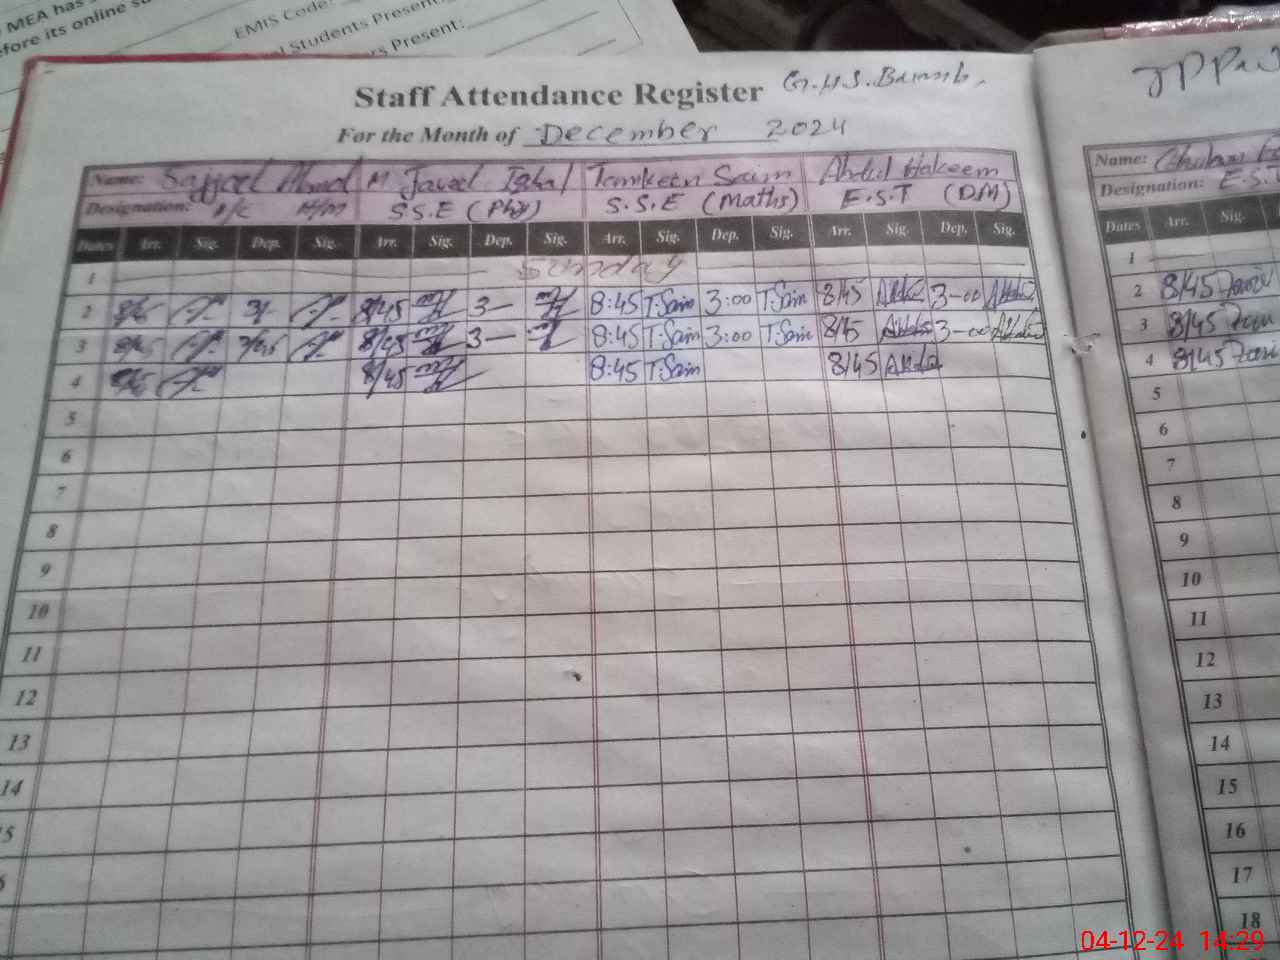 MEA has
before its online
EMIS Code:
Students Present:
Present:
Staff Attendance Register G.H.S.
For the Month of December 2024
Name: Sajjad Ahmad M Javed Iqbal Tamkeen Saim Abdul Hakeem
Designation: I/C H/M S.S.E (Phy) S.S.E (Maths) E.S.T (DM)
Dates Arr. Sig. Dep. Sig. Arr. Sig. Dep. Sig. Arr. Sig. Dep. Sig. Arr. Sig. Dep. Sig.
1 Sunday
2 8/45 3- 8:45 T.Saim 3:00 T.Saim 8/45 3-00
3 8/45 3- 8:45 T.Saim 3:00 T.Saim 8/45 3-00
4 8/45 8:45 T.Saim 8/45
5
6
7
8
9
10
11
12
13
14
Name: Ghulam
Designation: E.S.T
Dates Arr. Sig.
1
2 8/45
3 8/45
4 8/45
5
6
7
8
9
10
11
12
13
14
15
16
17
18
04-12-24 14:29